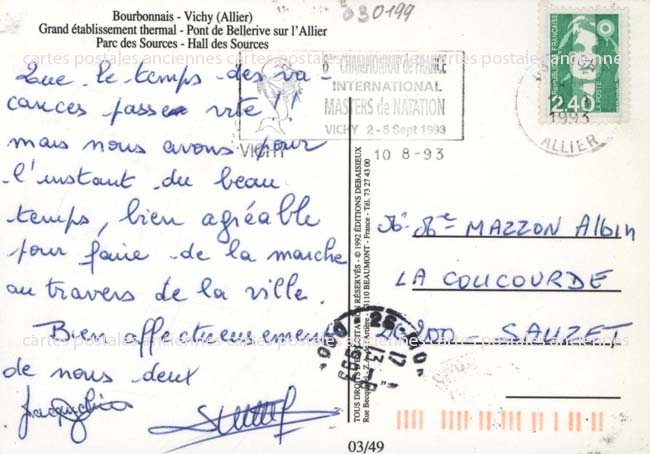 030199
Bourbonnais - Vichy (Allier)
Grand établissement thermal - Pont de Bellerive sur l'Allier
Parc des Sources - Hall des Sources
CHAMPIONNAT de FRANCE
INTERNATIONAL
MASTERS de NATATION
VICHY 2-5 Sept 1993
VICHY
10 8-93
1993
ALLIER
REPUBLIQUE FRANÇAISE
LA POSTE
2,40
Que le temps des va-
cances passe vite !!
mais nous avons pour
l'instant du beau
temps, bien agréable
pour faire de la marche
au travers de la ville.
Bien affectueusement
de nous deux
Mr Me MAZZON Albin
LA COUCOURDE
26200 - SAUZET
TOUS DROITS RÉSERVÉS - © 1992 ÉDITIONS DEBAISIEUX
BEAUMONT - France - Tél. 73 27 43 00
03/49
cartes postales anciennes cartes postales anciennes